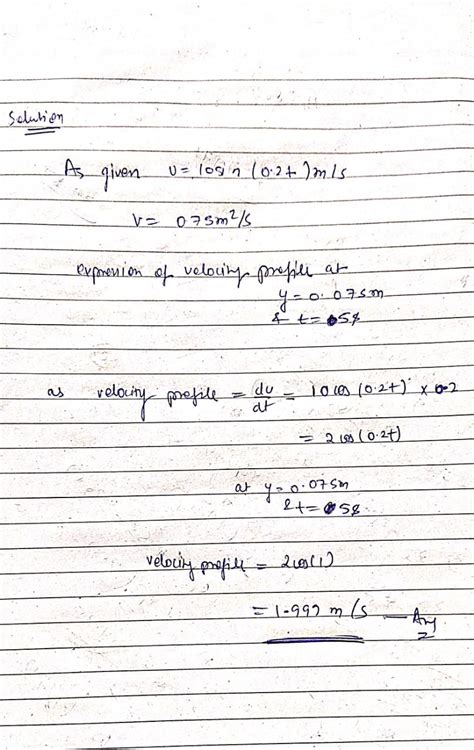 Solution
As given U = 10sin (0.2t) m/s
V = 075m²/s
expression of velocity profile at
y = 0.075m
& t = 5s
as velocity profile = du/dt = 10cos (0.2t) × 0.2
= 2cos (0.2t)
at y = 0.075m
& t = 5s
velocity profile = 2cos(1)
= 1.999 m/s — Ans